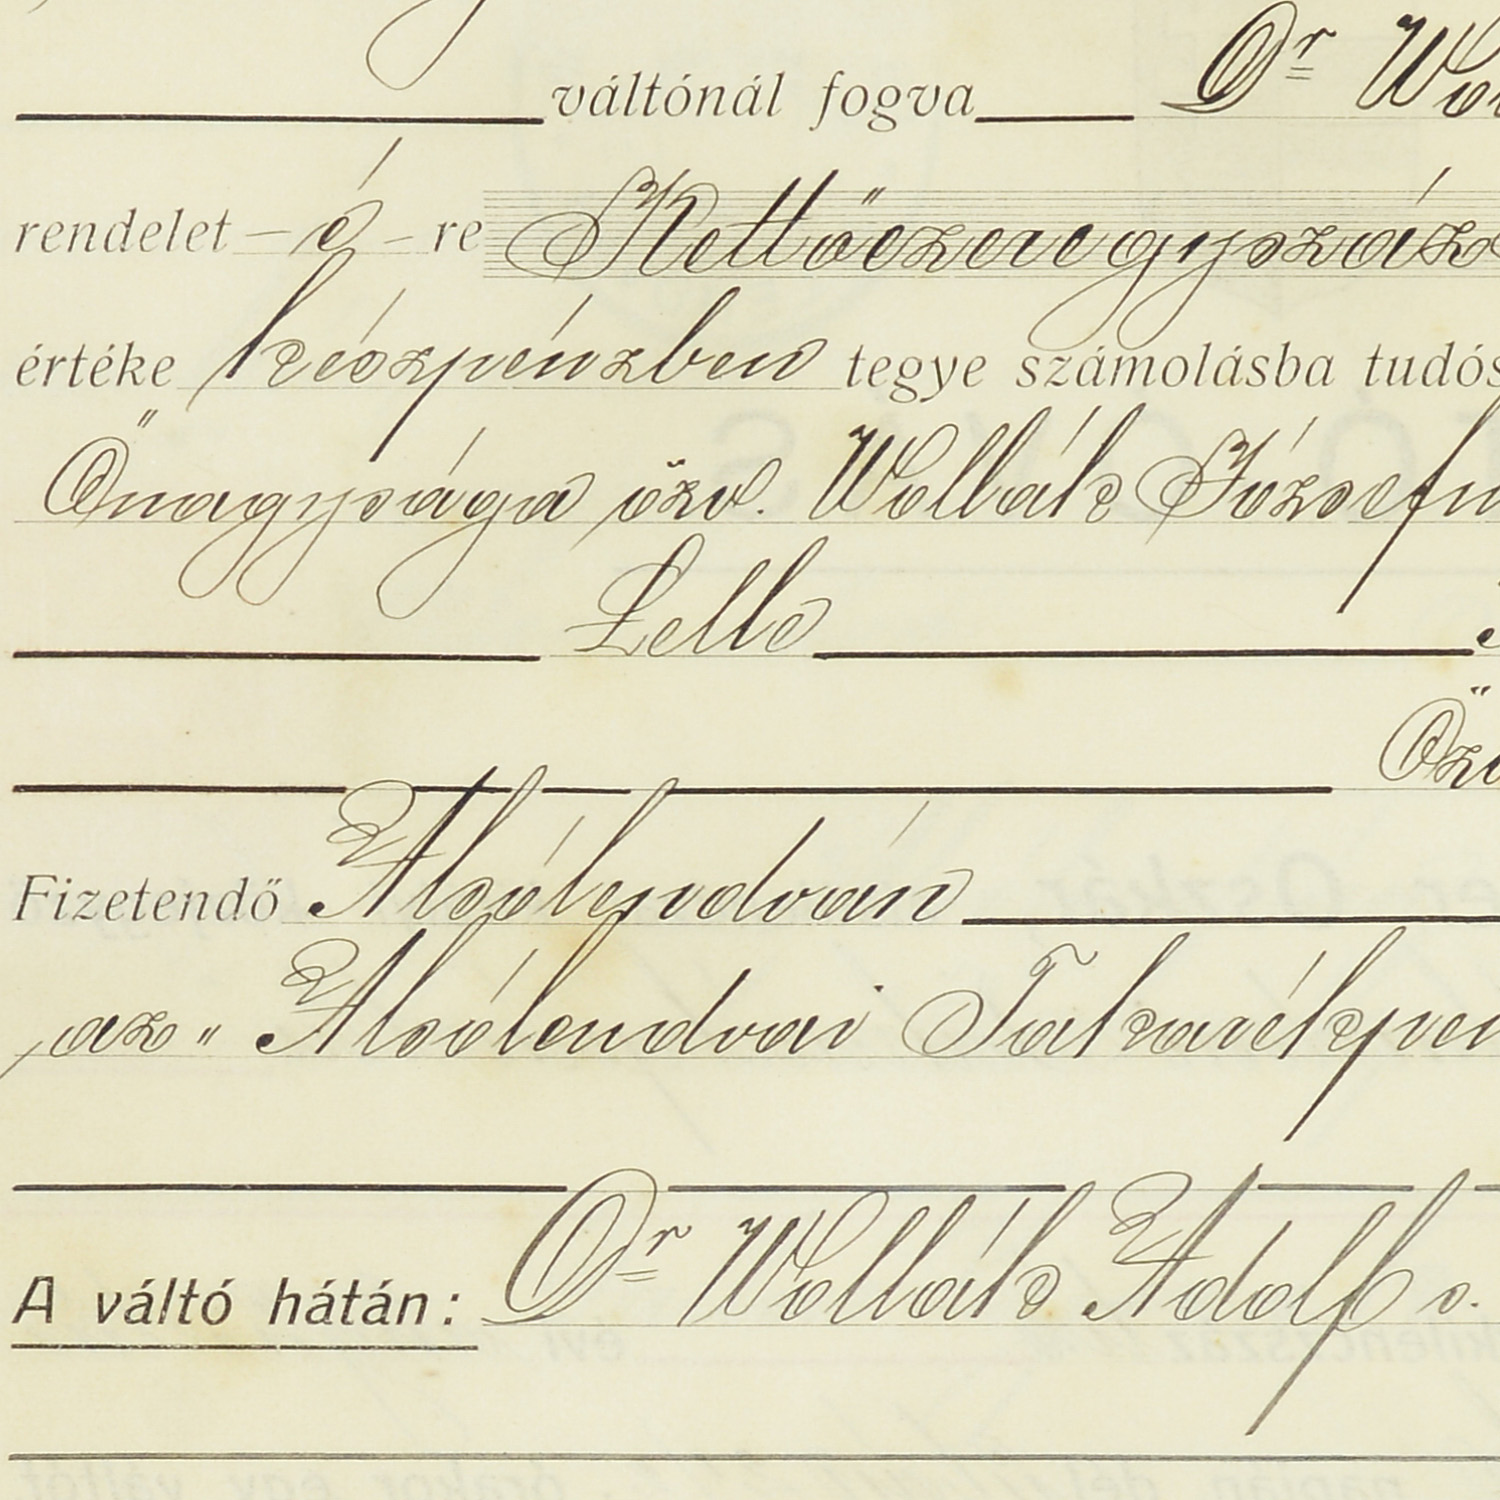 váltónál fogva Dr Wol
rendelet – é – re Kettőezeregyszáz
értéke készpénzben tegye számolásba tudós
Őnagysága özv. Wollák Józsefn
Lelle
Özv
Fizetendő Alsólendván
az „ Alsólendvai Takarékpén
A váltó hátán: Dr Wollák Adolf s.